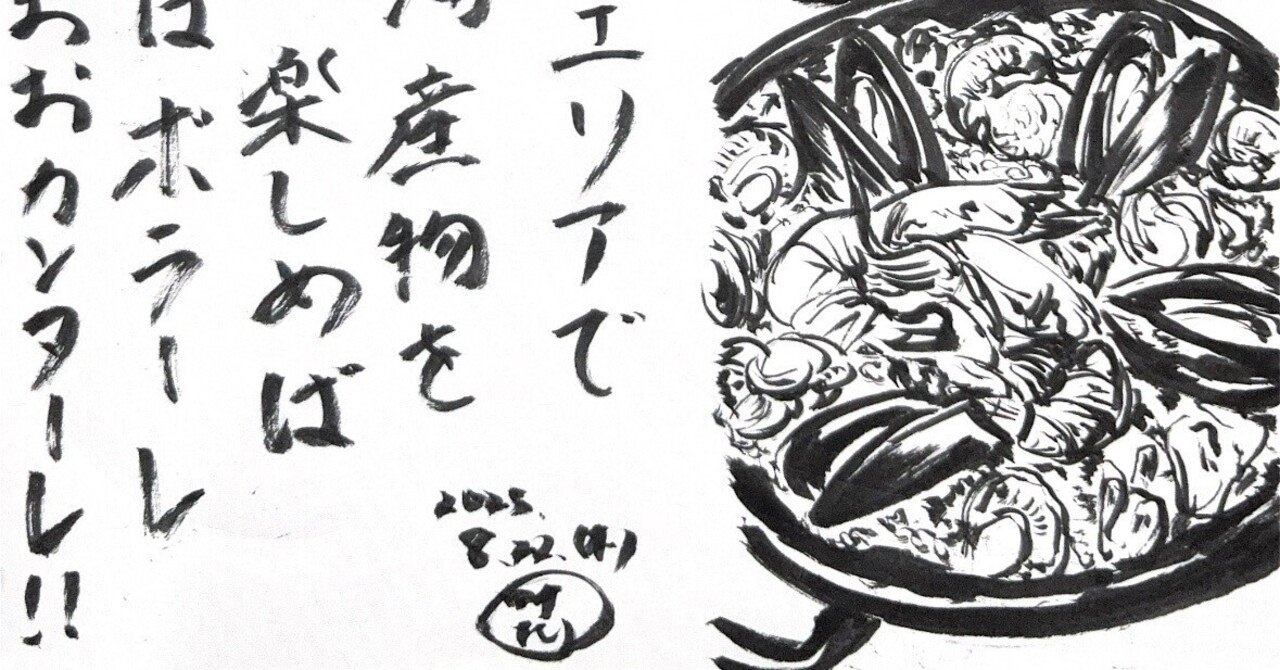 エリアで
海産物を
楽しめば
はボラーレ
おおカンターレ!!
2025.
8.22.